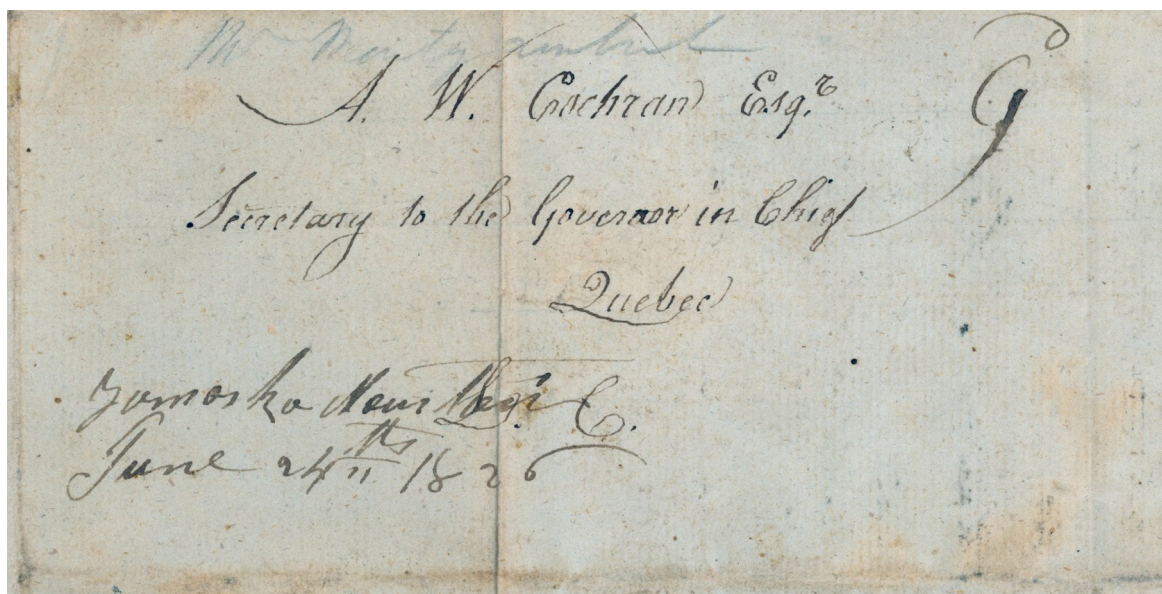 Mr Montizambert
A. W. Cochran Esqr G
Secretary to the Governor in Chief
Quebec
Yamaska
June 24th 1826